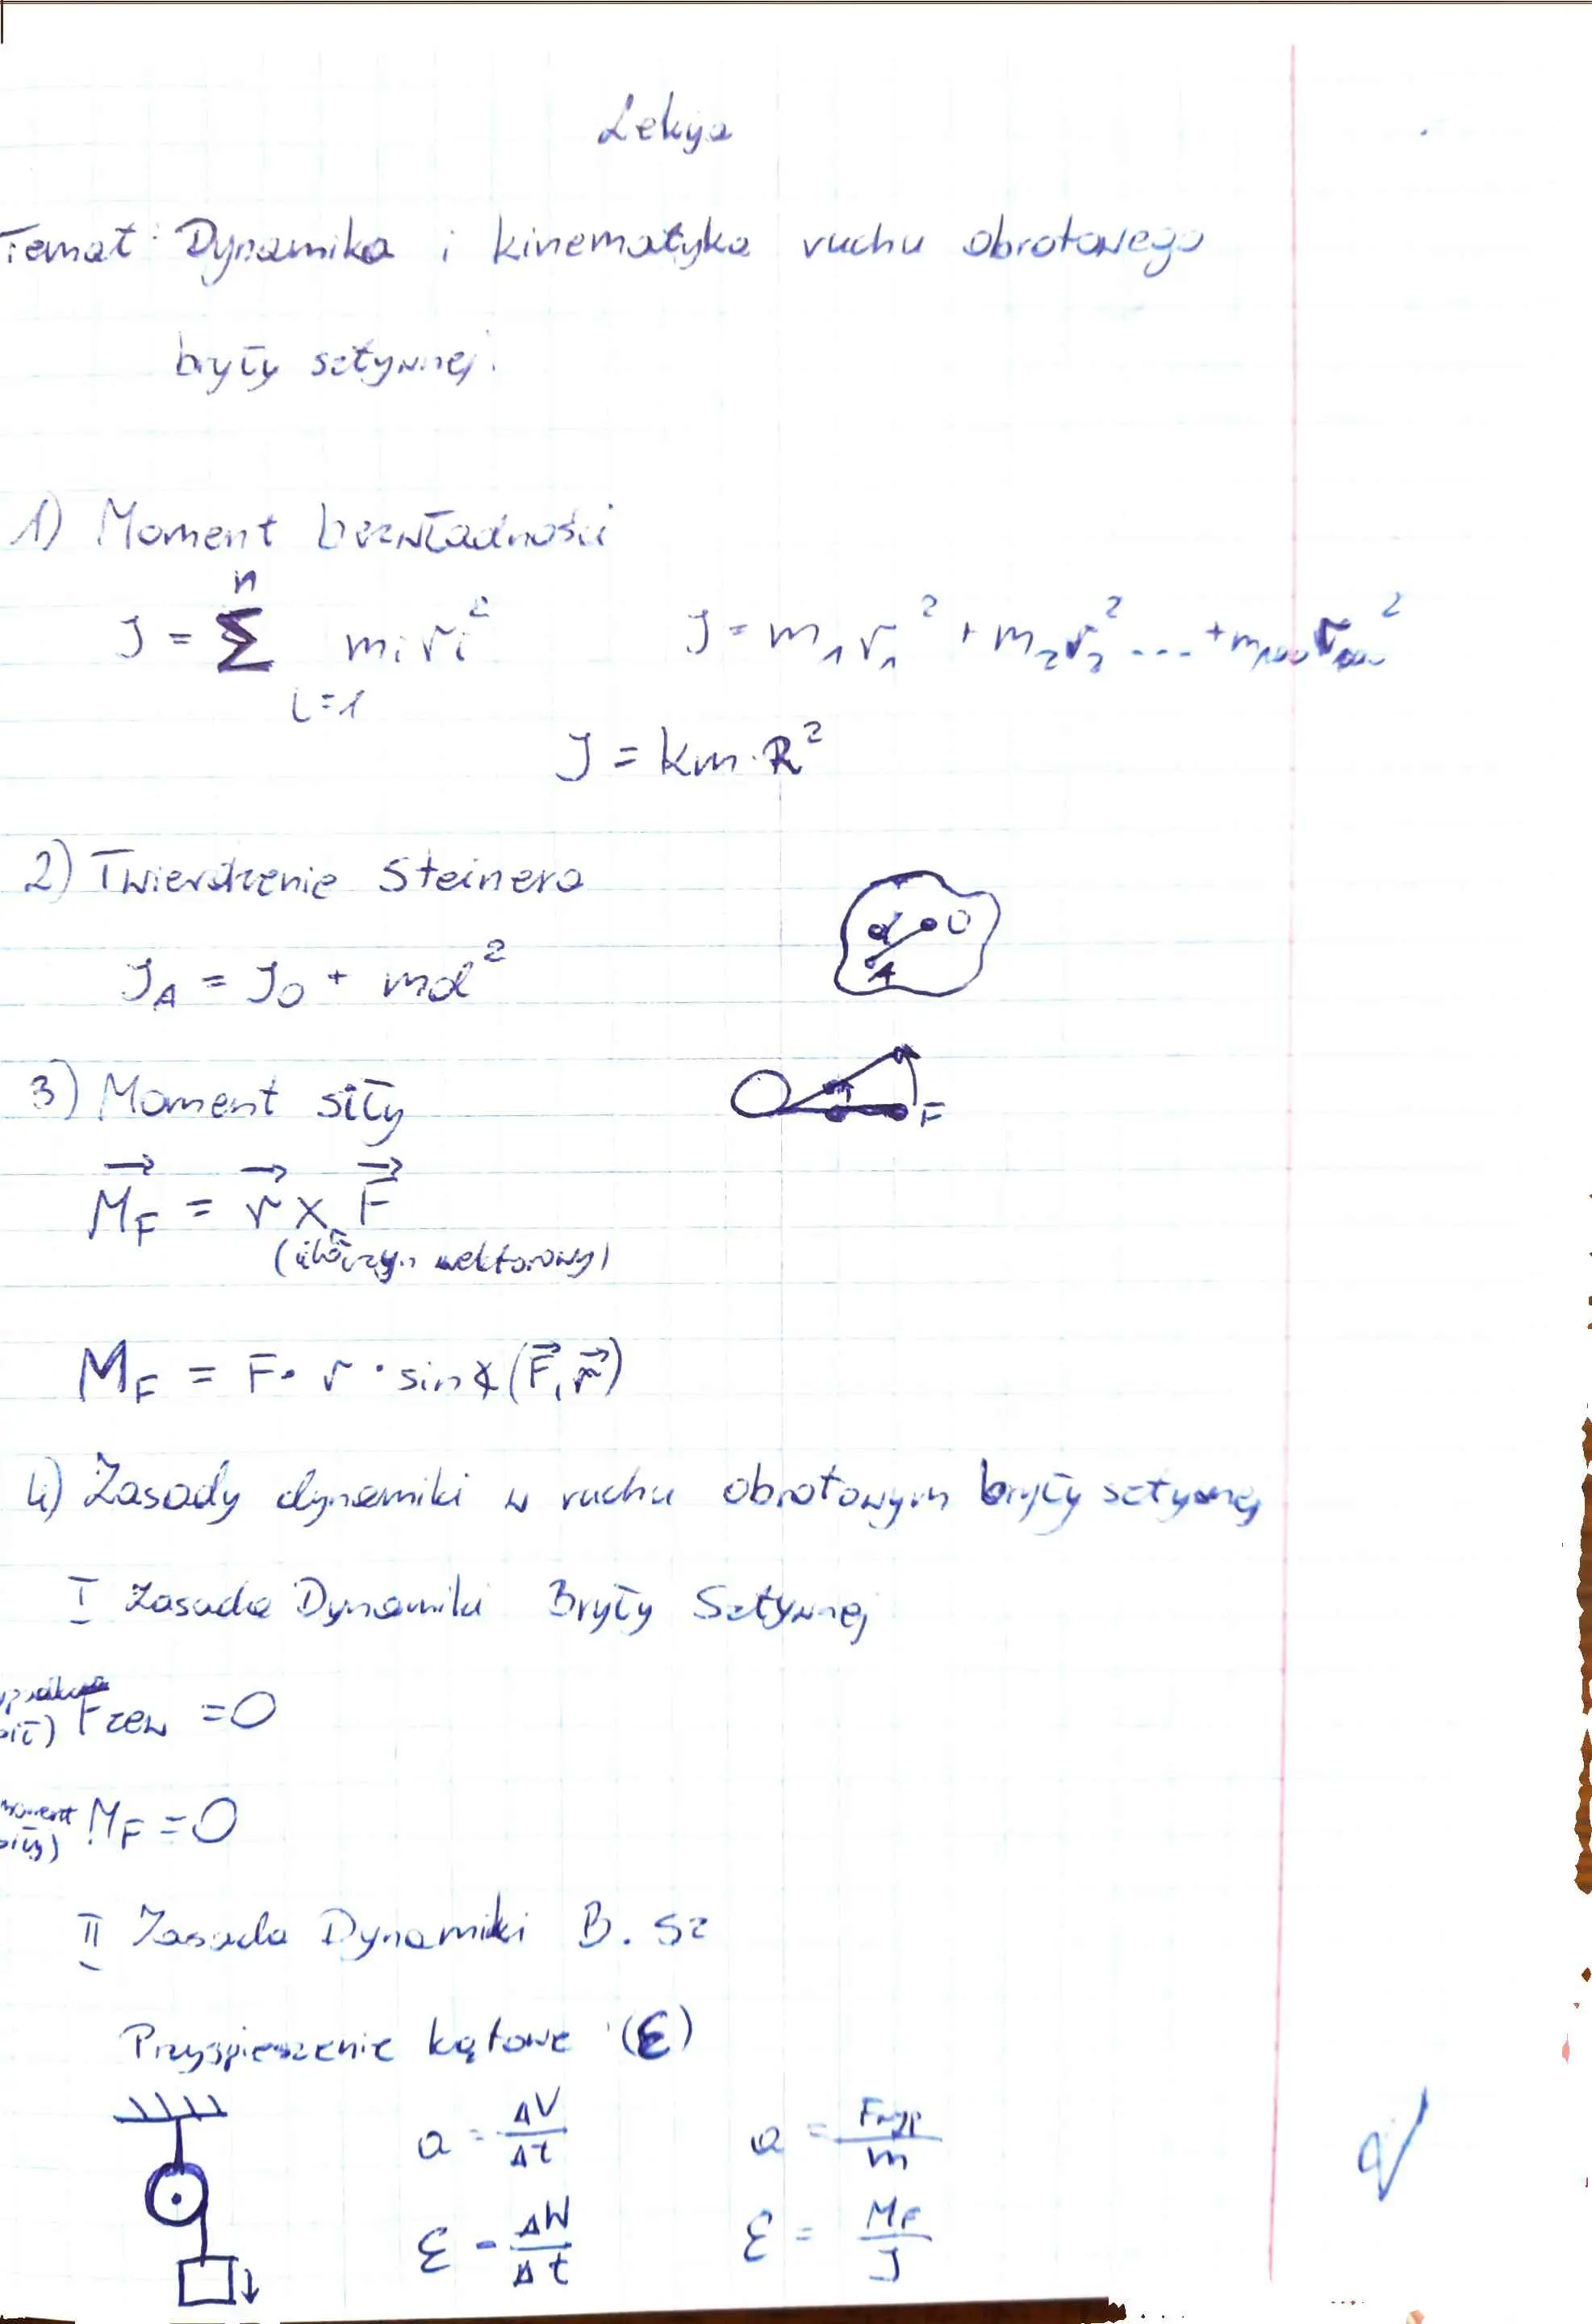 Lekcja
Temat: Dynamika i kinematyka ruchu obrotowego
bryły sztywnej.
1) Moment bezwładności
n
J = Σ mᵢrᵢ² J = m₁r₁² + m₂r₂² ... + m₁₀₀r₁₀₀²
i=1
J = km·R²
2) Twierdzenie Steinera
d O
A
J_A = J_O + md²
3) Moment siły
F
M_F = r × F
(iloczyn wektorowy)
M_F = F · r · sin∢(F, r)
4) Zasady dynamiki w ruchu obrotowym bryły sztywnej
I Zasada Dynamiki Bryły Sztywnej
F zew = 0
moment
M_F = 0
siły)
II Zasada Dynamiki B. Sz
Przyspieszenie kątowe (ε)
a = ΔV/Δt a = Fwyp/m
ε = ΔW/Δt ε = M_F/J